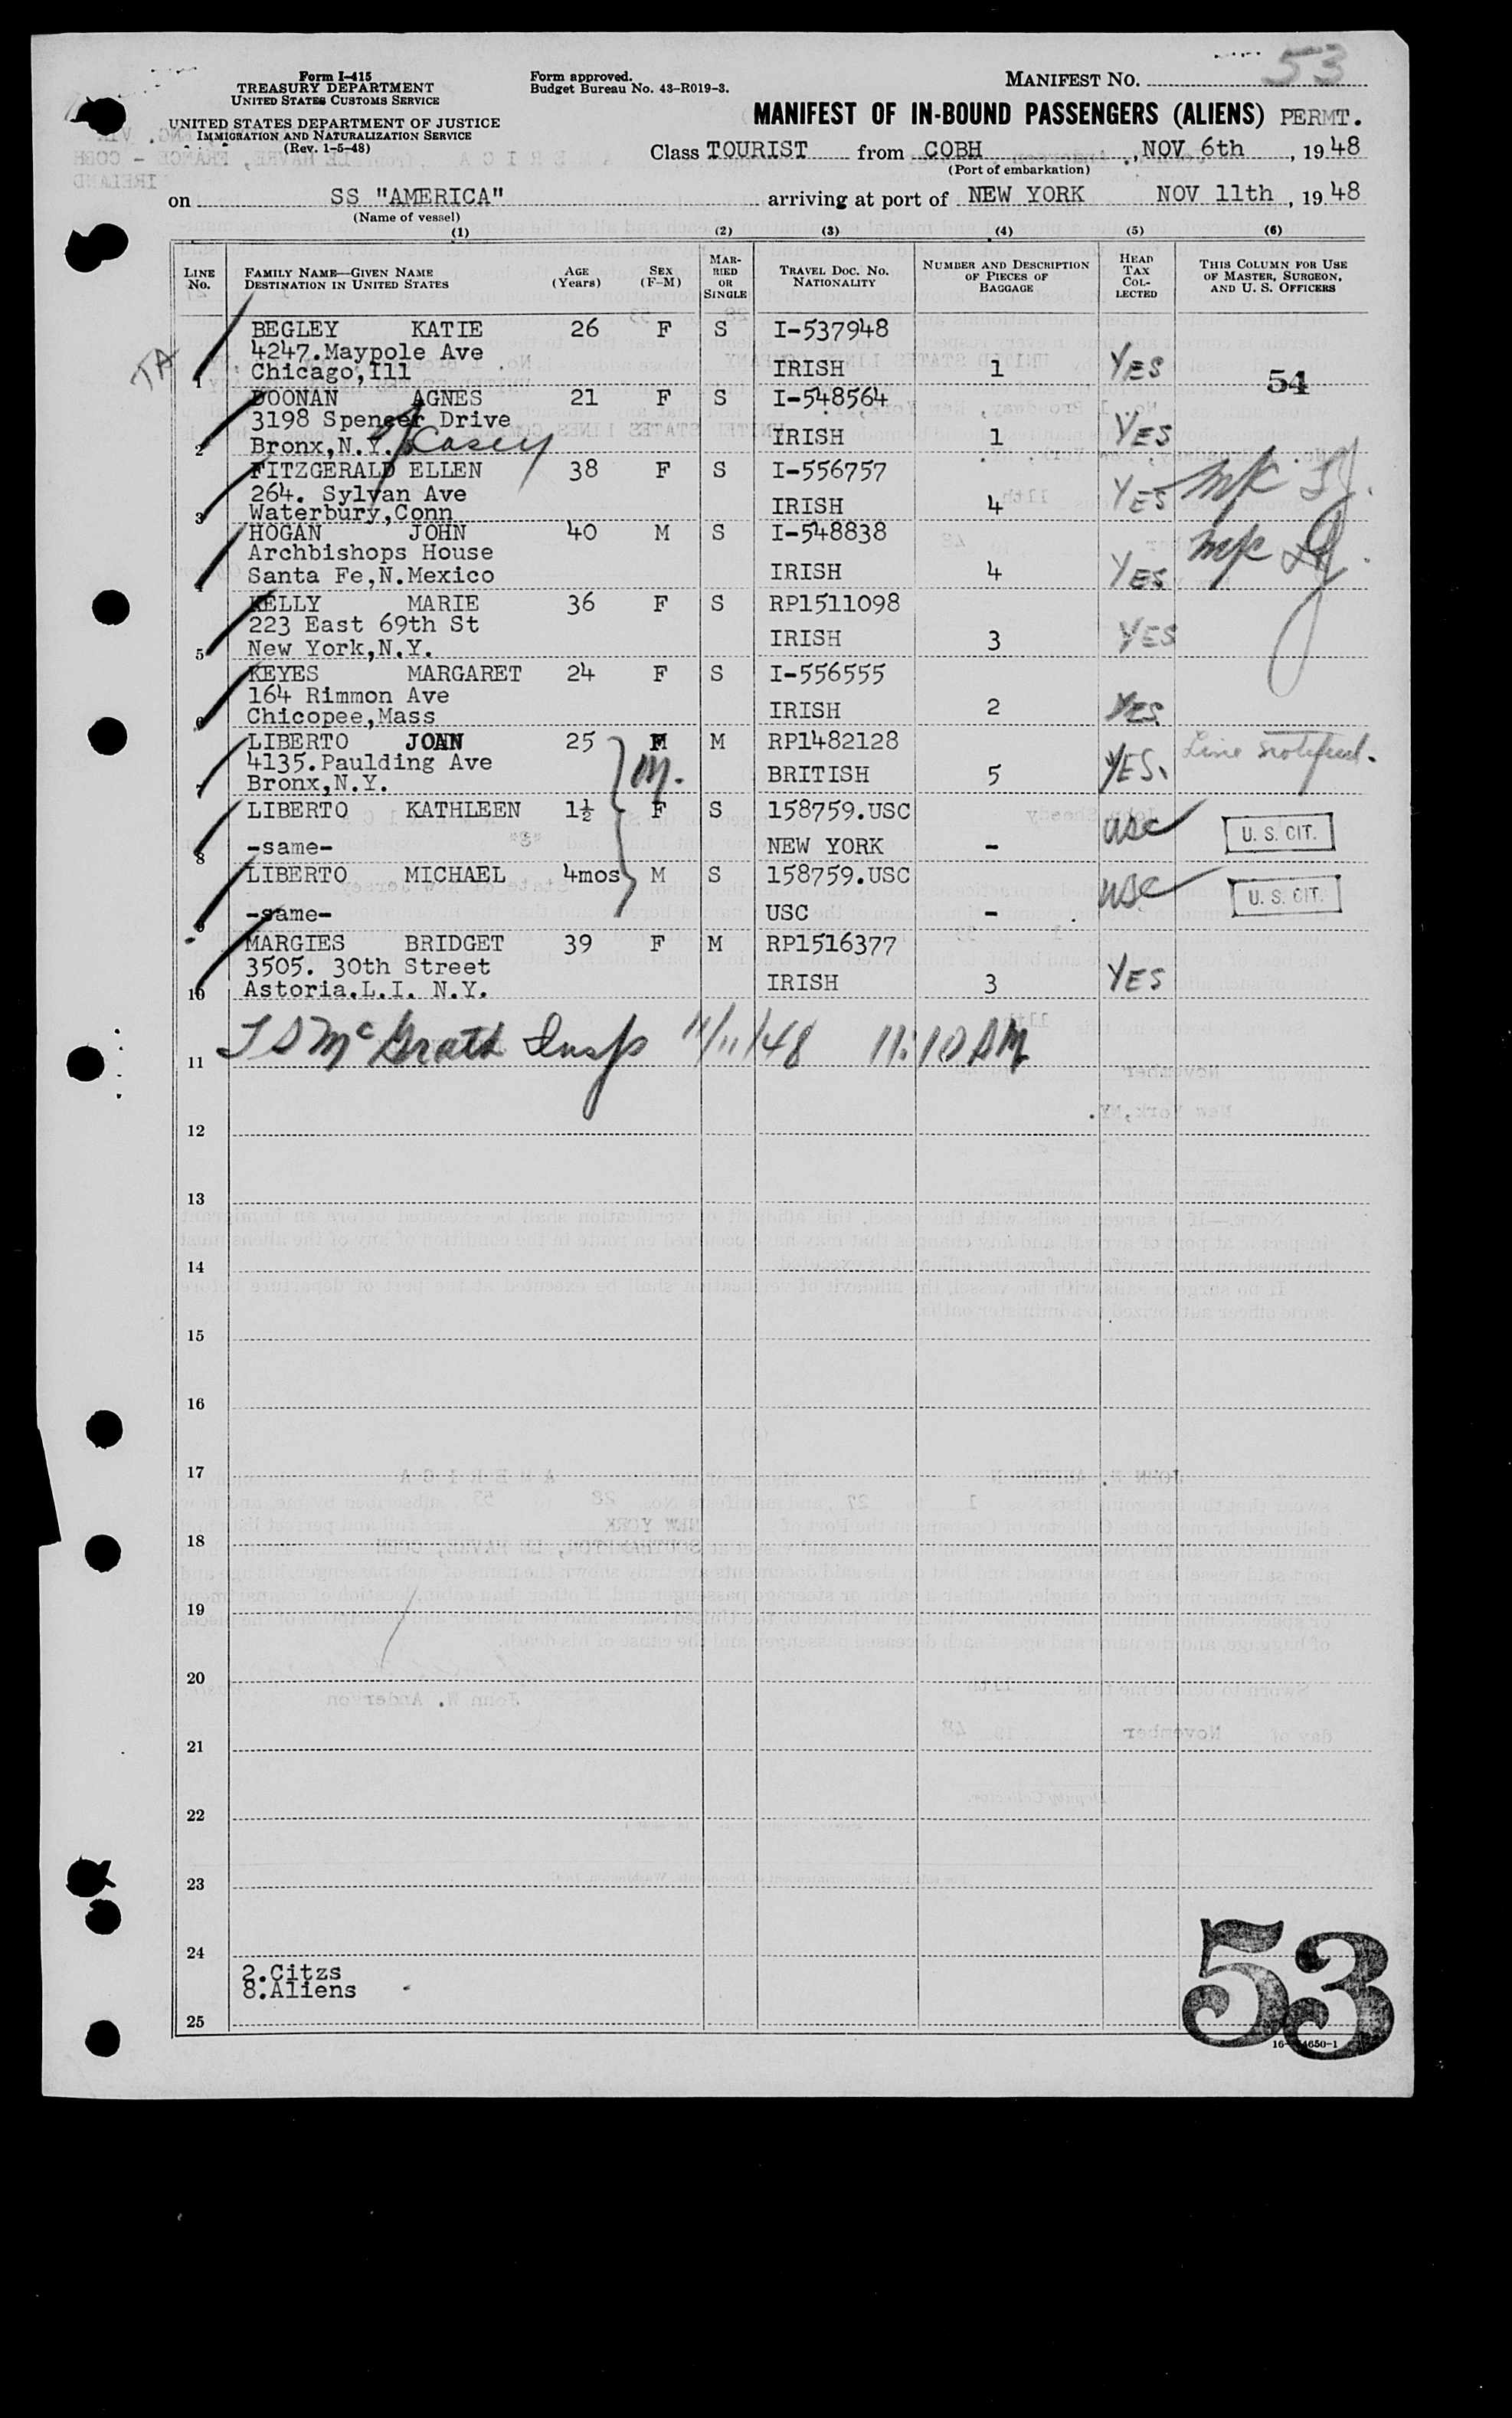 Form I-415
TREASURY DEPARTMENT
UNITED STATES CUSTOMS SERVICE
UNITED STATES DEPARTMENT OF JUSTICE
IMMIGRATION AND NATURALIZATION SERVICE
(Rev. 1-5-48)
Form approved.
Budget Bureau No. 43-R019-3.
MANIFEST NO. 53
MANIFEST OF IN-BOUND PASSENGERS (ALIENS) PERMT.
Class TOURIST from COBH, NOV 6th, 1948
(Port of embarkation)
on SS "AMERICA" arriving at port of NEW YORK NOV 11th, 1948
(Name of vessel)
(1) (2) (3) (4) (5) (6)
LINE No. FAMILY NAME—GIVEN NAME DESTINATION IN UNITED STATES AGE (Years) SEX (F-M) MARRIED OR SINGLE TRAVEL DOC. NO. NATIONALITY NUMBER AND DESCRIPTION OF PIECES OF BAGGAGE HEAD TAX COLLECTED THIS COLUMN FOR USE OF MASTER, SURGEON, AND U. S. OFFICERS
BEGLEY KATIE 26 F S I-537948
4247.Maypole Ave
TA 1 Chicago,Ill IRISH 1 YES 54
DOONAN AGNES 21 F S I-548564
3198 Spencer Drive
2 Bronx,N.Y. Casey IRISH 1 YES
FITZGERALD ELLEN 38 F S I-556757
264. Sylvan Ave
3 Waterbury,Conn IRISH 4 YES
HOGAN JOHN 40 M S I-548838
Archbishops House
4 Santa Fe,N.Mexico IRISH 4 YES
KELLY MARIE 36 F S RP1511098
223 East 69th St
5 New York,N.Y. IRISH 3 YES
KEYES MARGARET 24 F S I-556555
164 Rimmon Ave
6 Chicopee,Mass IRISH 2 YES
LIBERTO JOAN 25 M M RP1482128
4135.Paulding Ave M.
7 Bronx,N.Y. BRITISH 5 YES. Line notified.
LIBERTO KATHLEEN 1½ F S 158759.USC
8 -same- NEW YORK - USC U. S. CIT.
LIBERTO MICHAEL 4mos M S 158759.USC
9 -same- USC - USC U. S. CIT.
MARGIES BRIDGET 39 F M RP1516377
3505. 30th Street
10 Astoria.L.I. N.Y. IRISH 3 YES
11 T S McGrath Insp 11/11/48 11:10 AM
12
13
14
15
16
17
18
19
20
21
22
23
24
2.Citzs
8.Aliens
25
53